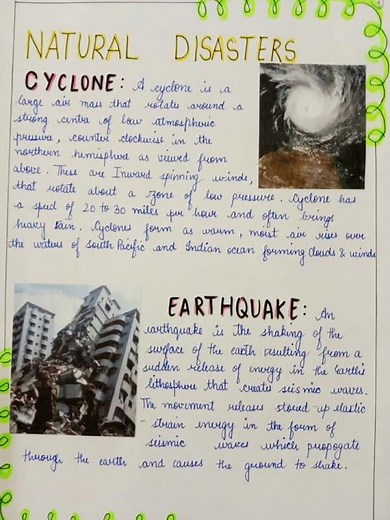 NATURAL DISASTERS
CYCLONE: A cyclone is a
large air mass that rotate around a
strong centre of low atmospheric
pressure, counter clockwise in the
northern hemisphere as viewed from
above. These are Inward spinning winds,
that rotate about a zone of low pressure. Cyclone has
a speed of 20 to 30 miles per hour and often brings
heavy Rain. Cyclones form as warm, moist air rises over
the waters of South Pacific and Indian ocean forming clouds & winds
EARTHQUAKE: An
earthquake is The shaking of the
surface of the earth resulting from a
sudden release of energy in the Earth's
lithosphere that creates seismic waves.
The movement releases stored-up elastic
-strain energy in the form of
seismic waves which propogate
through the earth and causes the ground to shake.